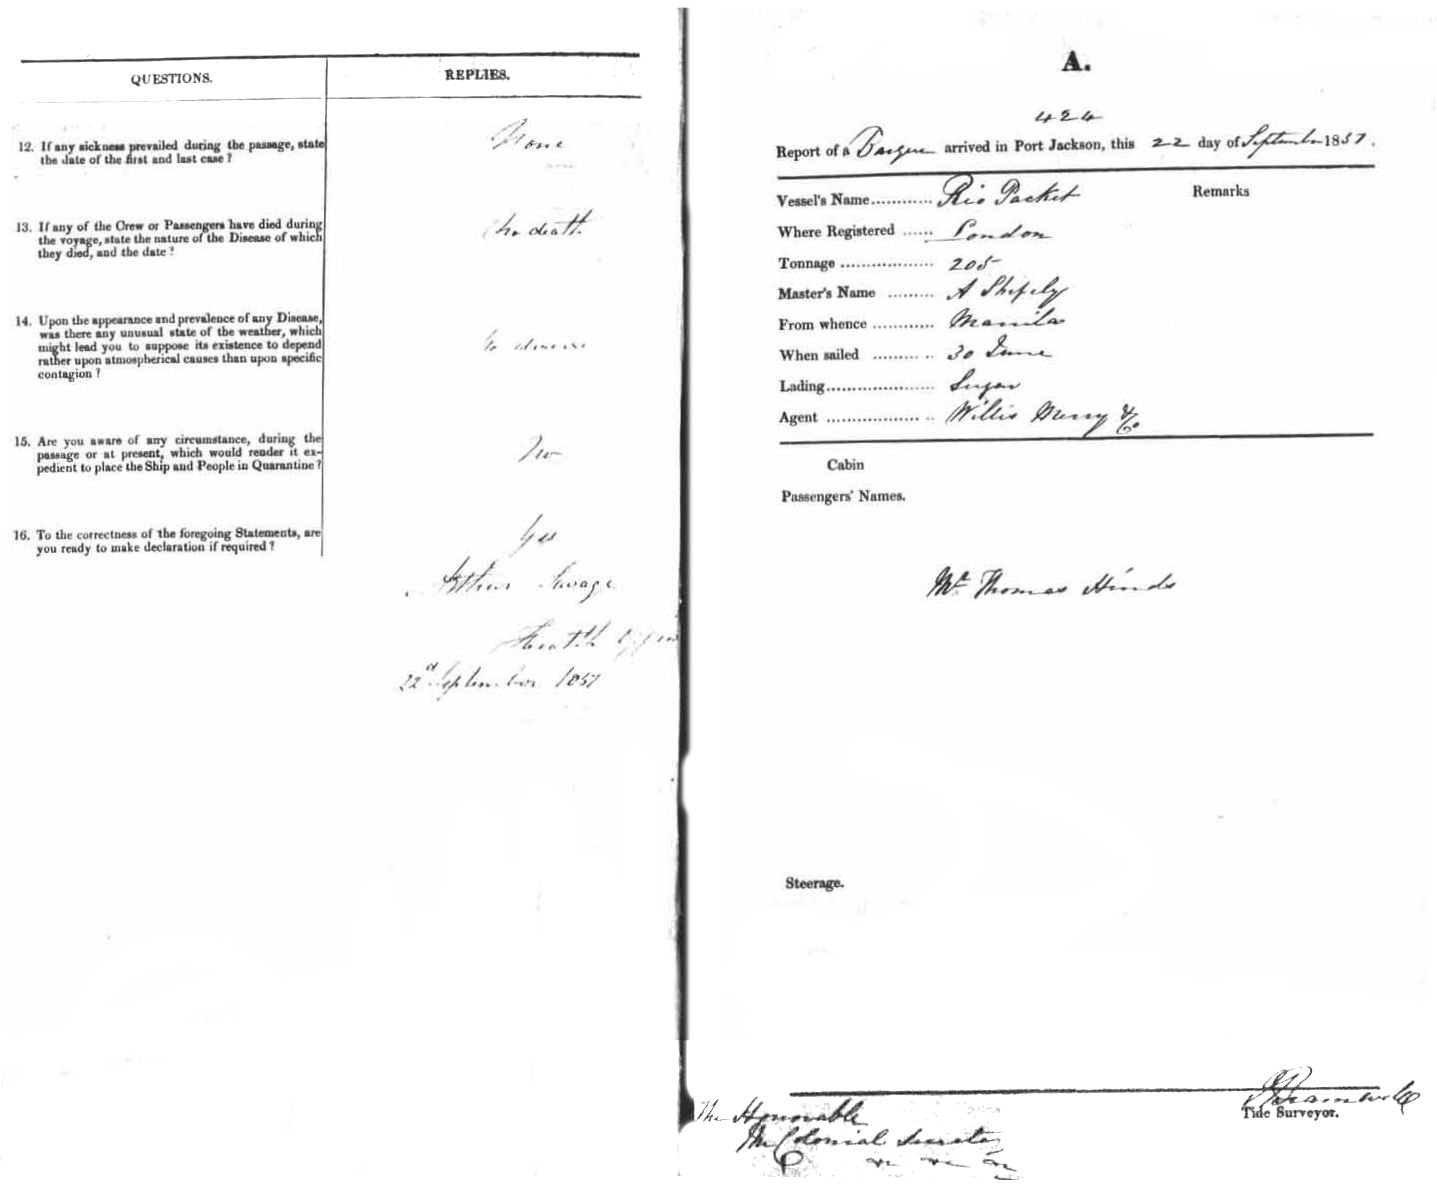 QUESTIONS.
REPLIES.
12. If any sickness prevailed during the passage, state
the date of the first and last case?
None
13. If any of the Crew or Passengers have died during
the voyage, state the nature of the Disease of which
they died, and the date?
No death
14. Upon the appearance and prevalence of any Disease,
was there any unusual state of the weather, which
might lead you to suppose its existence to depend
rather upon atmospherical causes than upon specific
contagion?
No disease
15. Are you aware of any circumstance, during the
passage or at present, which would render it ex-
pedient to place the Ship and People in Quarantine?
No
16. To the correctness of the foregoing Statements, are
you ready to make declaration if required?
Yes
Arthur Savage
Health
22d September 1857
A.
424
Report of a Barque arrived in Port Jackson, this 22 day of September 1857.
Vessel's Name............ Rio Packet
Remarks
Where Registered ...... London
Tonnage .................. 205
Master's Name ......... A Shipely
From whence ............ Manila
When sailed ........... 30 June
Lading..................... Sugar
Agent .................... Willis Merry & Co
Cabin
Passengers' Names.
Mr Thomas Hinds
Steerage.
Bramwell
Tide Surveyor.
The Honorable
The Colonial Secretary